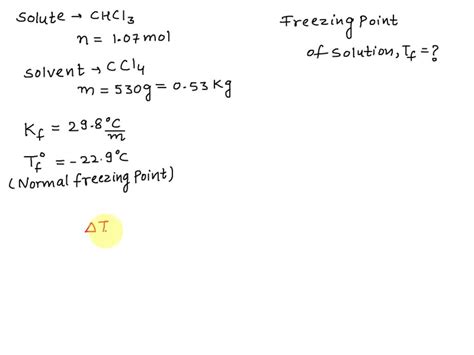 Solute → CHCl3
n = 1.07 mol
Solvent → CCl4
m = 530g = 0.53 Kg
Kf = 29.8 °C/m
Tf° = -22.9°C
(Normal freezing Point)
ΔT
Freezing Point
of Solution, Tf = ?